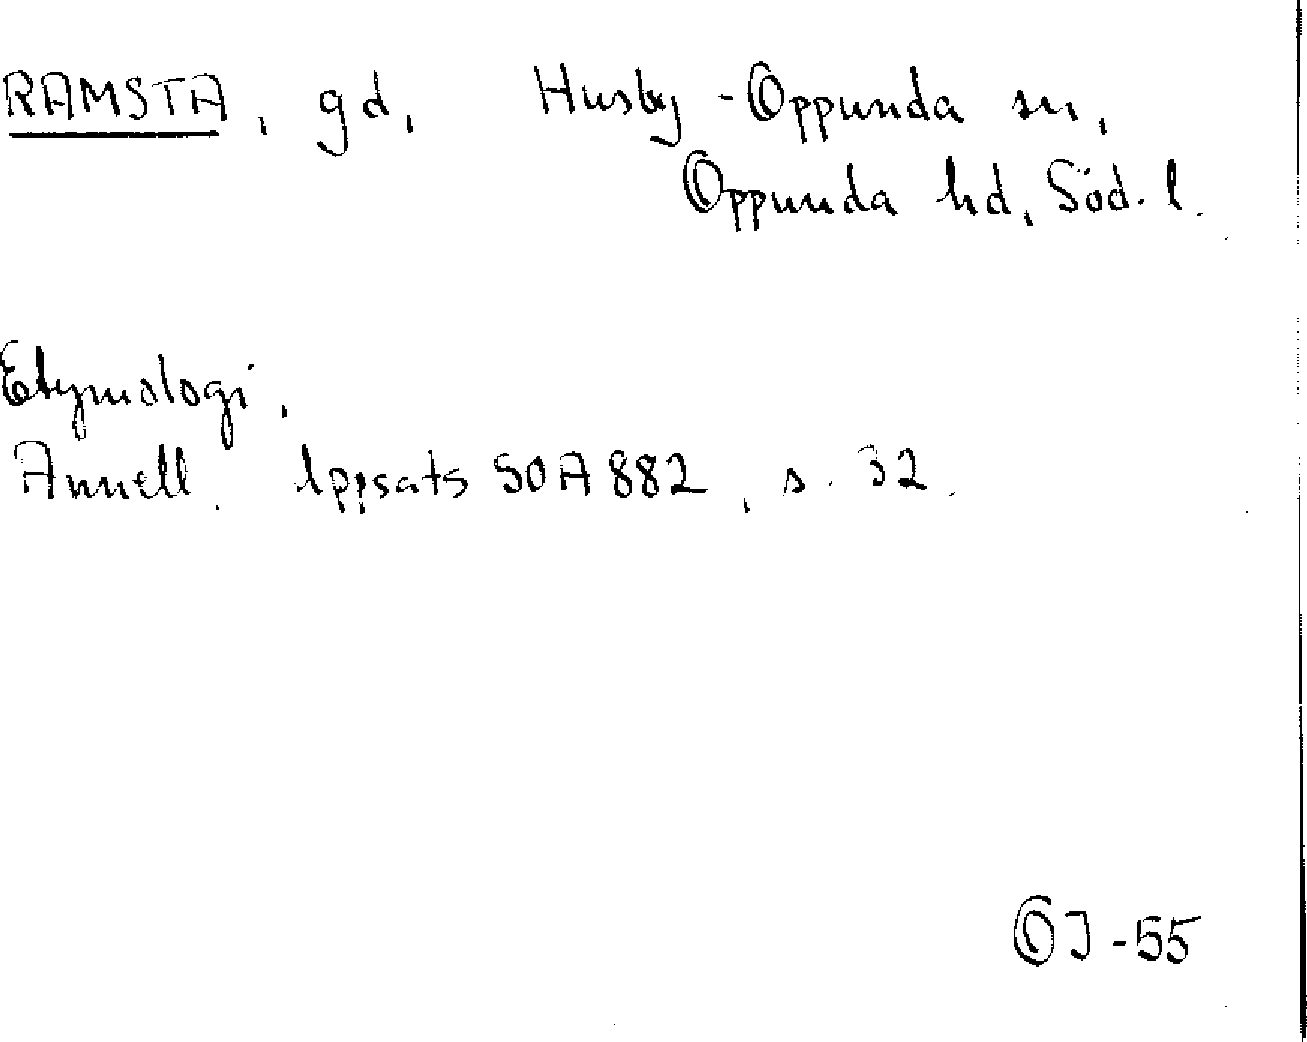 RAMSTA, gd, Husby-Oppunda sn,
Oppunda hd, Söd. l.
Etymologi.
Annell. Uppsats SOA 882, s. 32.
OJ-55